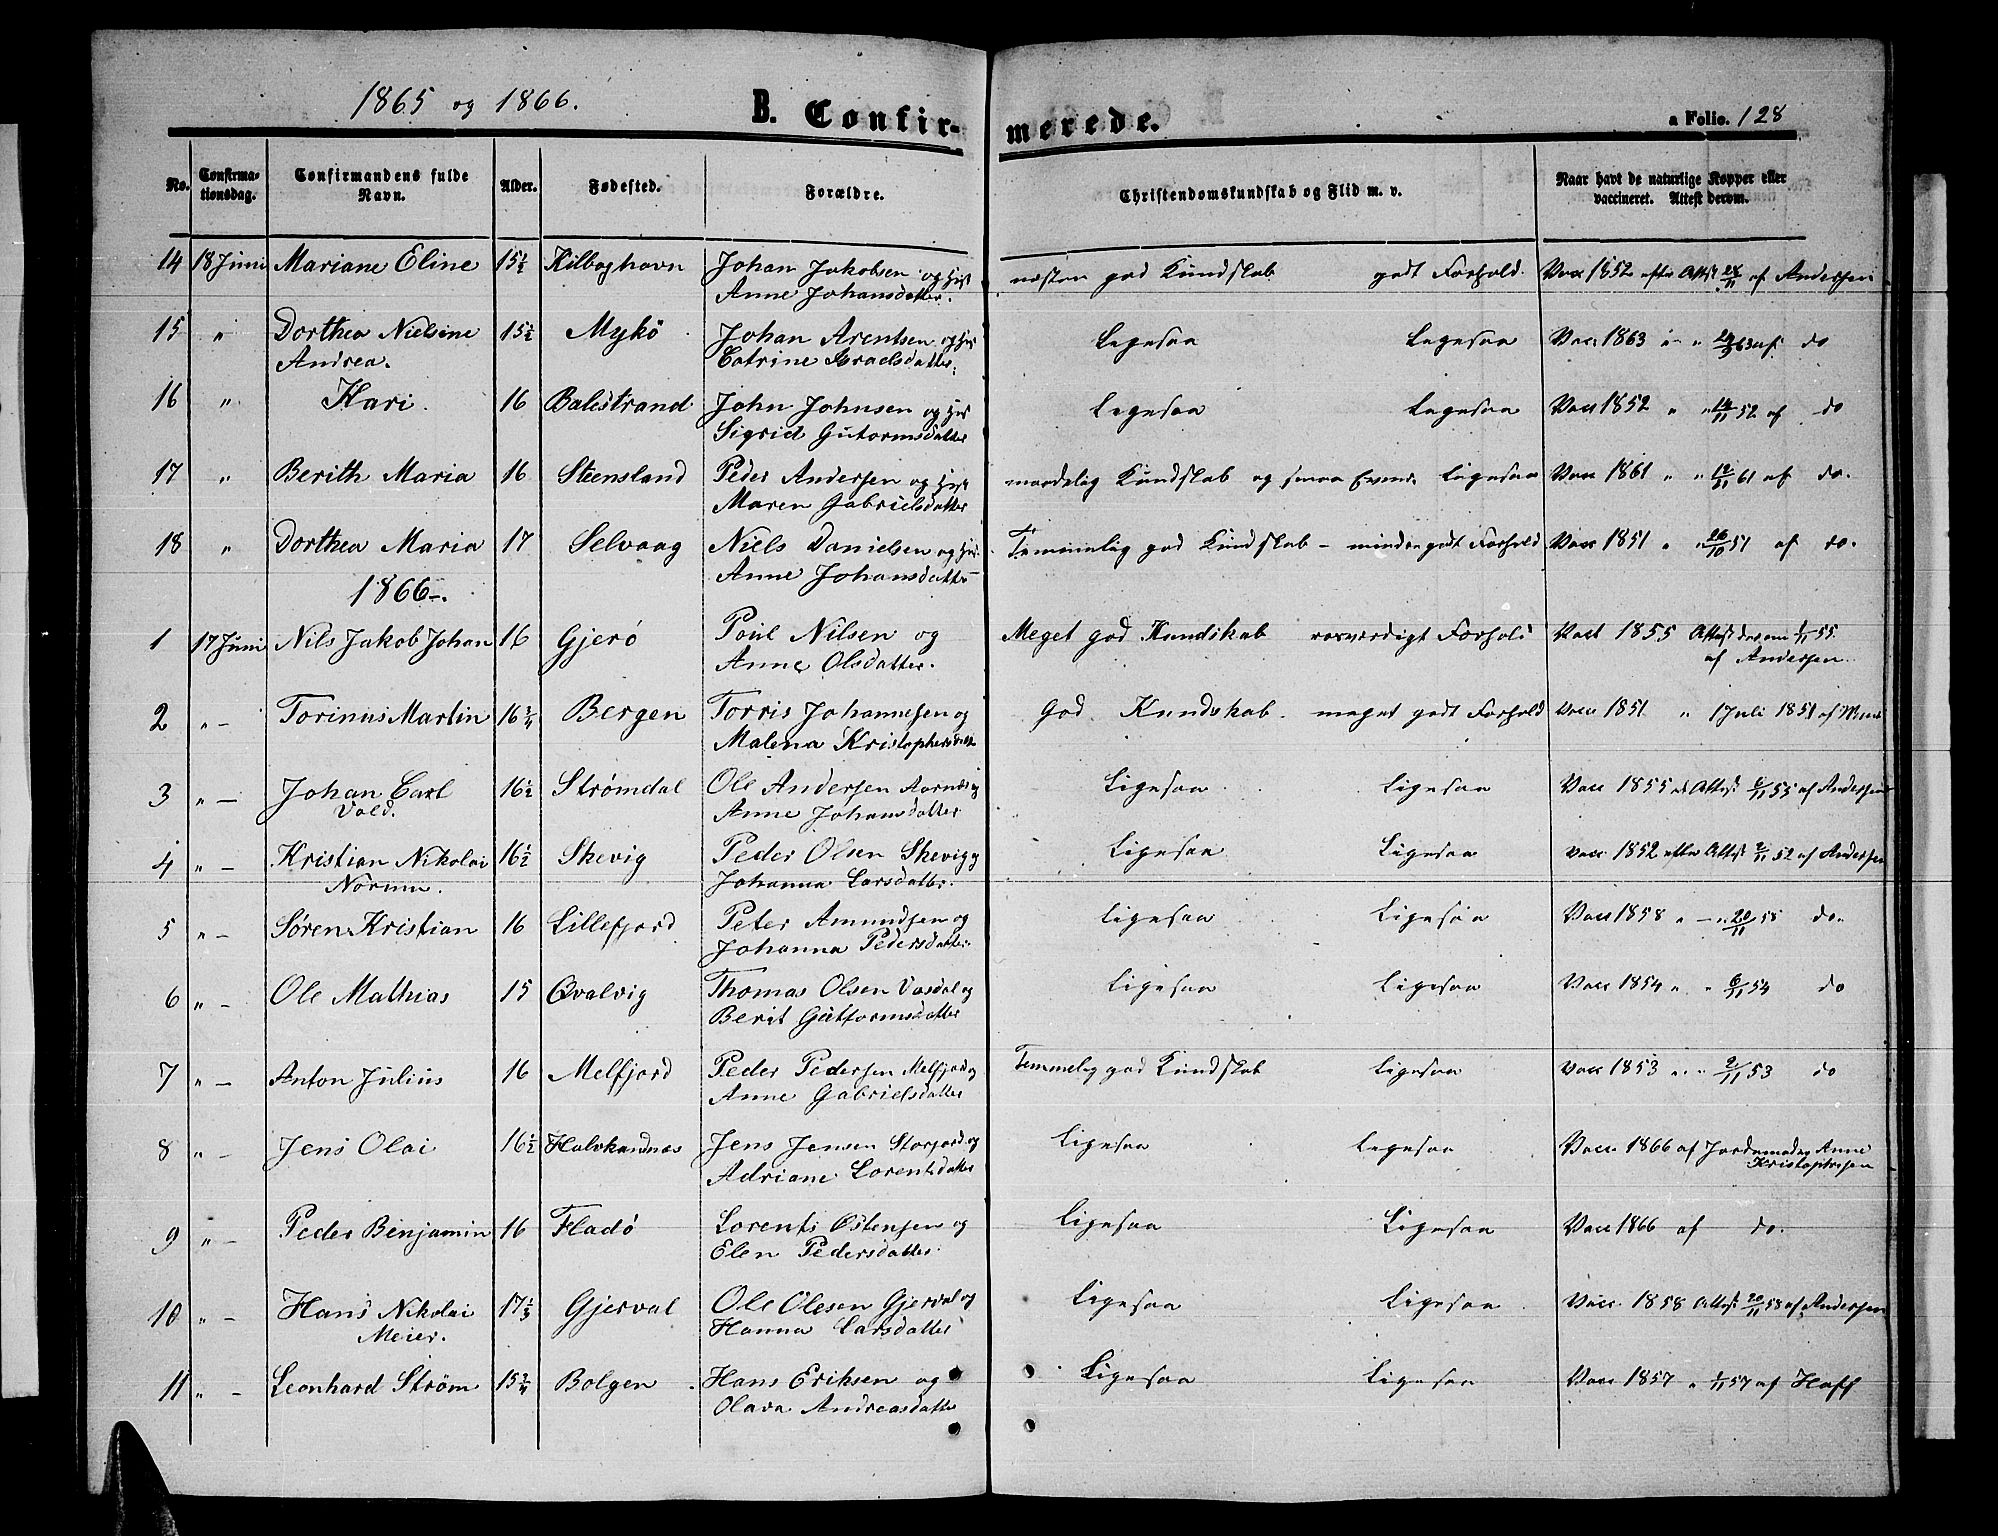 1865 og 1866.
B. Confirmerede.
a Folio. 128
No. Confirmationsdag. Confirmandens fulde Navn. Alder. Fødested. Forældre. Christendomskundskab og Flid m. v. Naar havt de naturlige Kopper eller vaccineret. Attest derom.
14 18 Juni Mariane Eline 15½ Kilboghavn Johan Jakobsen og Hust næsten god Kundskab godt Forhold. Vacc 1852 efter Attest 28/11 af Andersen
Anne Johansdatter.
15 " Dorthea Nielsine 15½ Mykö Johan Arentsen og Hust Ligesaa Ligesaa Vacc 1863 " " 24/9 63 af do
Andrea. Catrine Israelsdatter.
16 " Kari. 16 Balestrand John Johnsen og Hust Ligesaa Ligesaa Vacc 1852 " " 14/11 52 af do
Sigrid Gutormsdatter
17 " Berith Maria 16 Steensland Peder Andersen og Hust maadelig Kundskab og smaa Evner Ligesaa Vacc 1861 " " 12/11 61 af do.
Maren Gabrielsdatter
18 " Dorthea Maria 17 Selvaag Niels Danielsen og Hust. Temmelig god Kundskab – mindre godt Forhold Vacc 1851 " " 26/10 51 af do.
Anne Johansdatter
1866.
1 17 Juni Nils Jakob Johan 16 Gjerö Poul Nilsen og Meget god Kundskab rosværdigt Forhold Vacc 1855 Attest derom 1/11 55.
Anne Olsdatter. af Andersen.
2 " – Torinus Martin 16¾ Bergen Torris Johannesen og God Kundskab. meget godt Forhold Vacc 1851 " 1 Juli 1851 af
Malena Kristophersdatter
3 " – Johan Carl 16½ Strømdal Ole Andersen Aarnes og Ligesaa Ligesaa Vacc 1855 Attest 6/11 55 af Andersen
Vold. Anne Johansdatter
4 " – Kristian Nikolai 16½ Skevig Peder Olsen Skevig og Ligesaa Ligesaa Vacc 1852 efter Attest 2/11 52 af Andersen
Normn. Johanna Larsdatter.
5 " – Søren Kristian 16 Lillefjord Peter Amundsen og Ligesaa Ligesaa Vacc 1858 " – " 20/11 58 do.
Johanna Pedersdatter
6 " – Ole Mathias 15 Qvalvig Thomas Olsen Vasdal og Ligesaa Ligesaa Vacc 1854 " " 6/11 54 do
Berit Guttormsdatter
7 " – Anton Julius 16 Melfjord Peder Pedersen Melfjord og Temmelig god Kundskab Ligesaa Vacc 1853 " " 2/11 53 do
Anne Gabrielsdatter
8 " – Jens Olai 16½ Halvhandnes Jens Jensen Storjord og Ligesaa Ligesaa Vacc 1866 af Jordemoder Anne
Adriane Lorentsdatter Kristophersen
9 " – Peder Benjamin 16 Fladö Lorents Østensen og Ligesaa Ligesaa Vacc 1866 af do.
Elen Pedersdatter
10 " – Hans Nikolai 17⅓ Gjerval Ole Olesen Gjerval og Ligesaa Ligesaa Vacc. 1858 Attest 20/11 58 af Andersen
Meier. Hanna Larsdatter
11 " – Leonhard Strøm 15¾ Bolgen Hans Eriksen og Ligesaa Ligesaa Vacc 1857 " 1/11 57 af Haff
Olava Andreasdatter